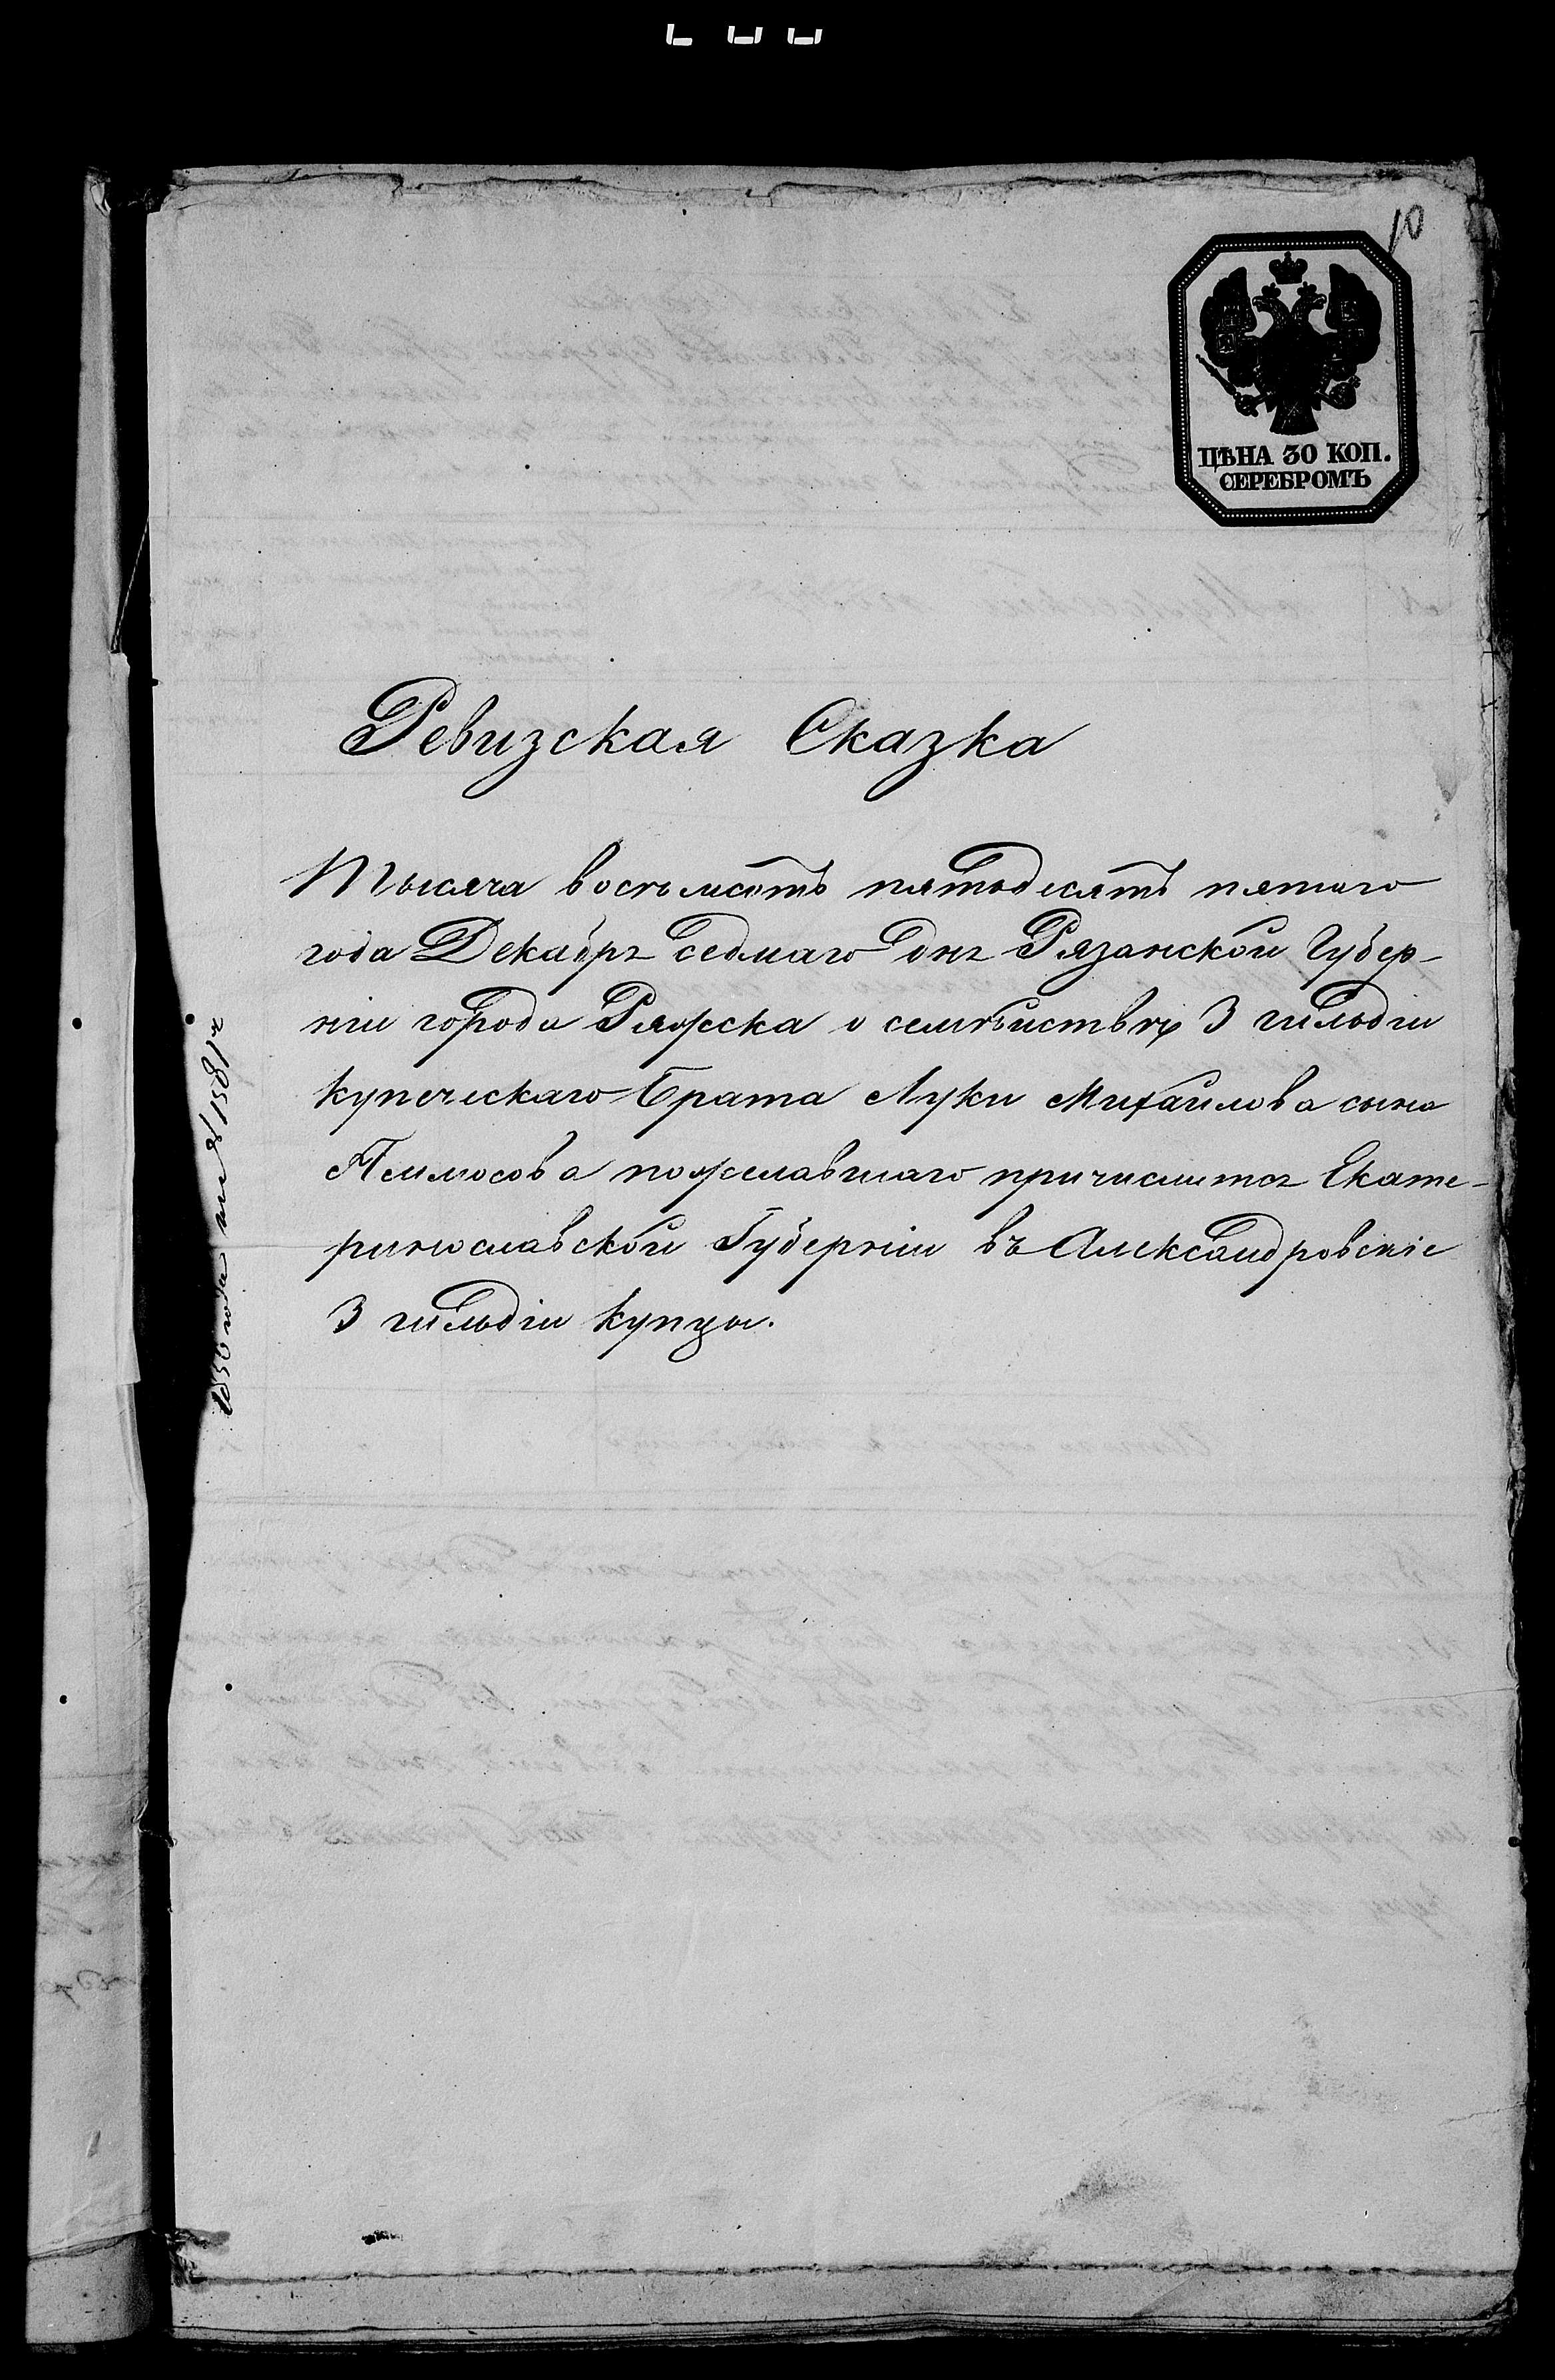 10
ЦѢНА 30 КОП.
СЕРЕБРОМЪ
Ревизская Сказка
Тысяча восемьсотъ пятьдесятъ пятаго
года Декабря седмаго дня Рязанской Губер-
ніи города Ряжска о семѣйствѣ 3 гильдіи
купеческаго брата Луки Михайлова сына
пожелавшаго причислится Екате-
ринославской Губерніи въ Александровскіе
3 гильдіи купцы.